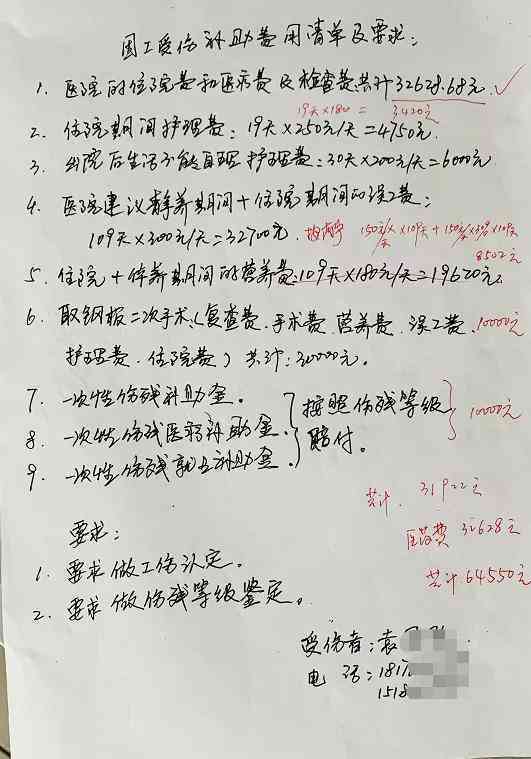 因工受伤补助费用清单及要求：
1. 医院的住院费和医疗费及检查费共计32628.68元 ✓
19天×180 = 3420元
2. 住院期间护理费：19天×250元/天=4750元.
3. 出院后生活不能自理护理费：30天×200元/天=6000元
4. 医院建议静养期间+住院期间的误工费：
109天×300元/天=32700元.
150元/天×109天+150元/天
8502元
5. 住院+休养期间的营养费：109天×180元/天=19620元.
6. 取钢板二次手术（复查费.手术费.营养费.误工费. 10000元
护理费.住院费）共计：30000元.
7. 一次性伤残补助金.
8. 一次性伤残医疗补助金.
9. 一次性伤残就业补助金.
按照伤残等级
赔付.
10000元
共计. 31922元
医药费 32628元
共计64550元
要求：
1. 要求做工伤认定.
2. 要求做伤残等级鉴定.
受伤者：袁
电话：181
1518